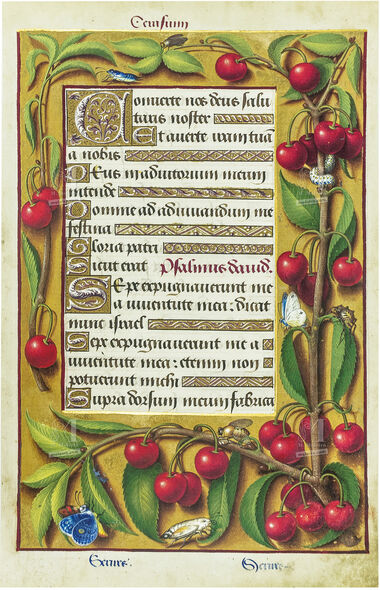 Conuerte nos deus salu
taris noster
Et auerte iram tuā
a nobis
Deus in adiutorium meum
intende
Domine ad adiuuandum me
festina
Gloria patri
Sicut erat Psalmus dauid.
Sepe expugnauerunt me
a iuuentute mea: dicat
nunc israel
Sepe expugnauerunt me a
iuuētute mea: etenim non
potuerunt michi
Supra dorsum meum fabrica